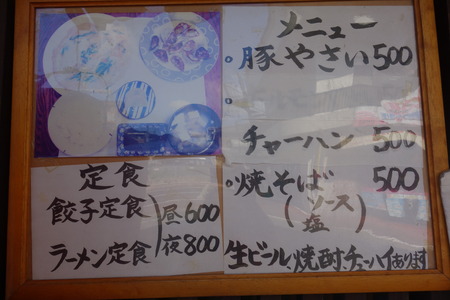 メニュー
豚やさい 500
チャーハン 500
焼そば 500
(ソース
塩)
生ビール、焼酎、チューハイあります
定食
餃子定食
ラーメン定食
昼600
夜800